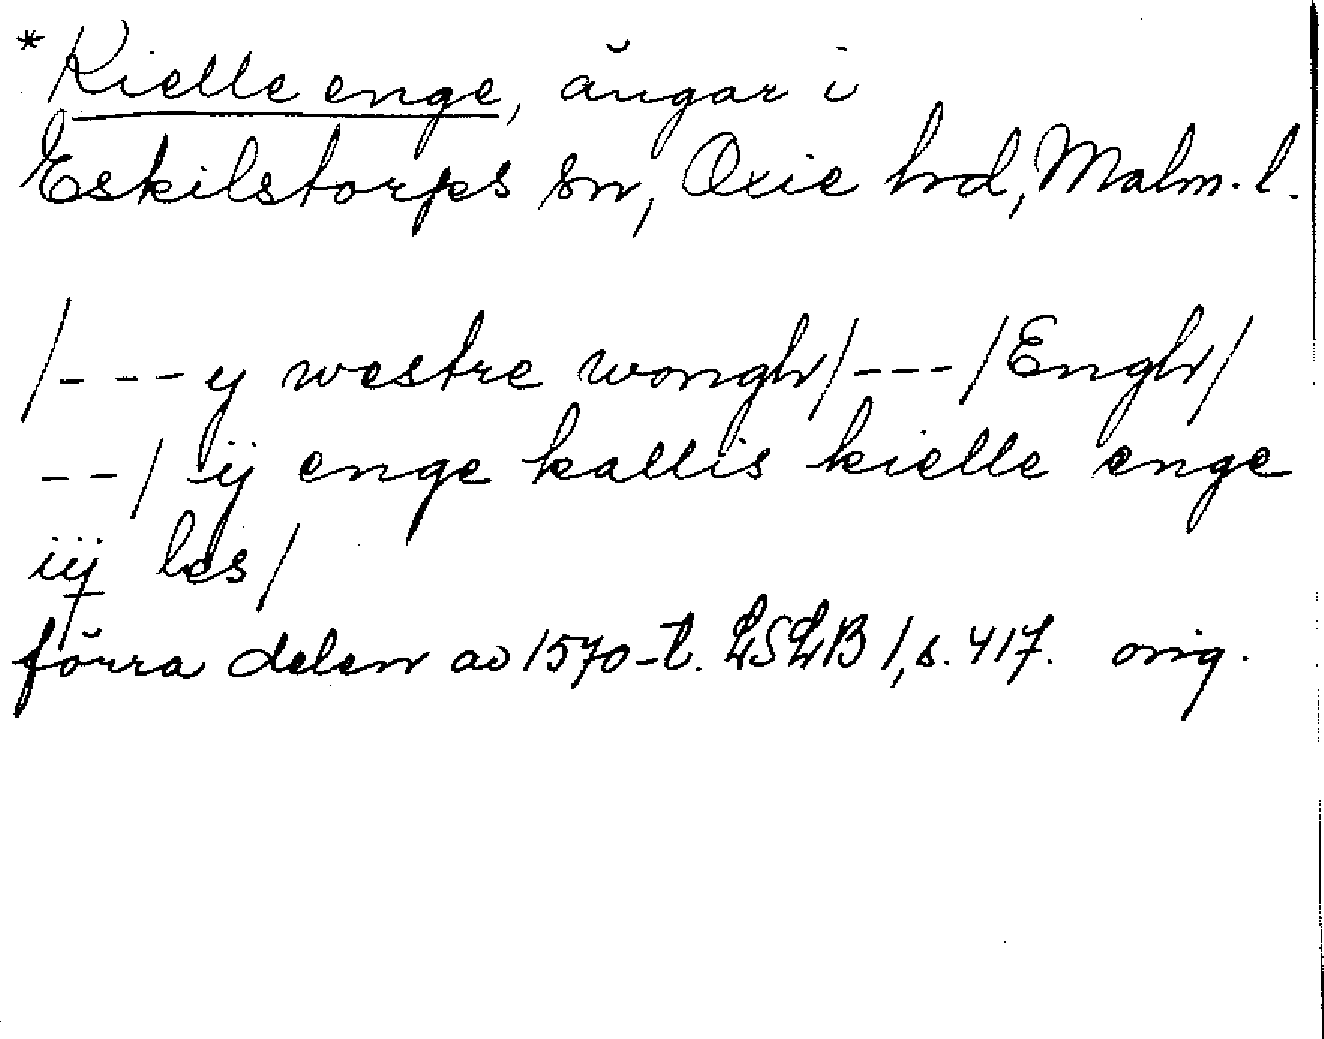 *Kielle enge, ängar i
Eskilstorps sn, Oxie hd, Malm. l.
/--- y westre wongh/---/Engh/
--/ ij enge kallis kielle enge
iij les/
förra delen av 1570-t. LSLB 1, s. 417. orig.